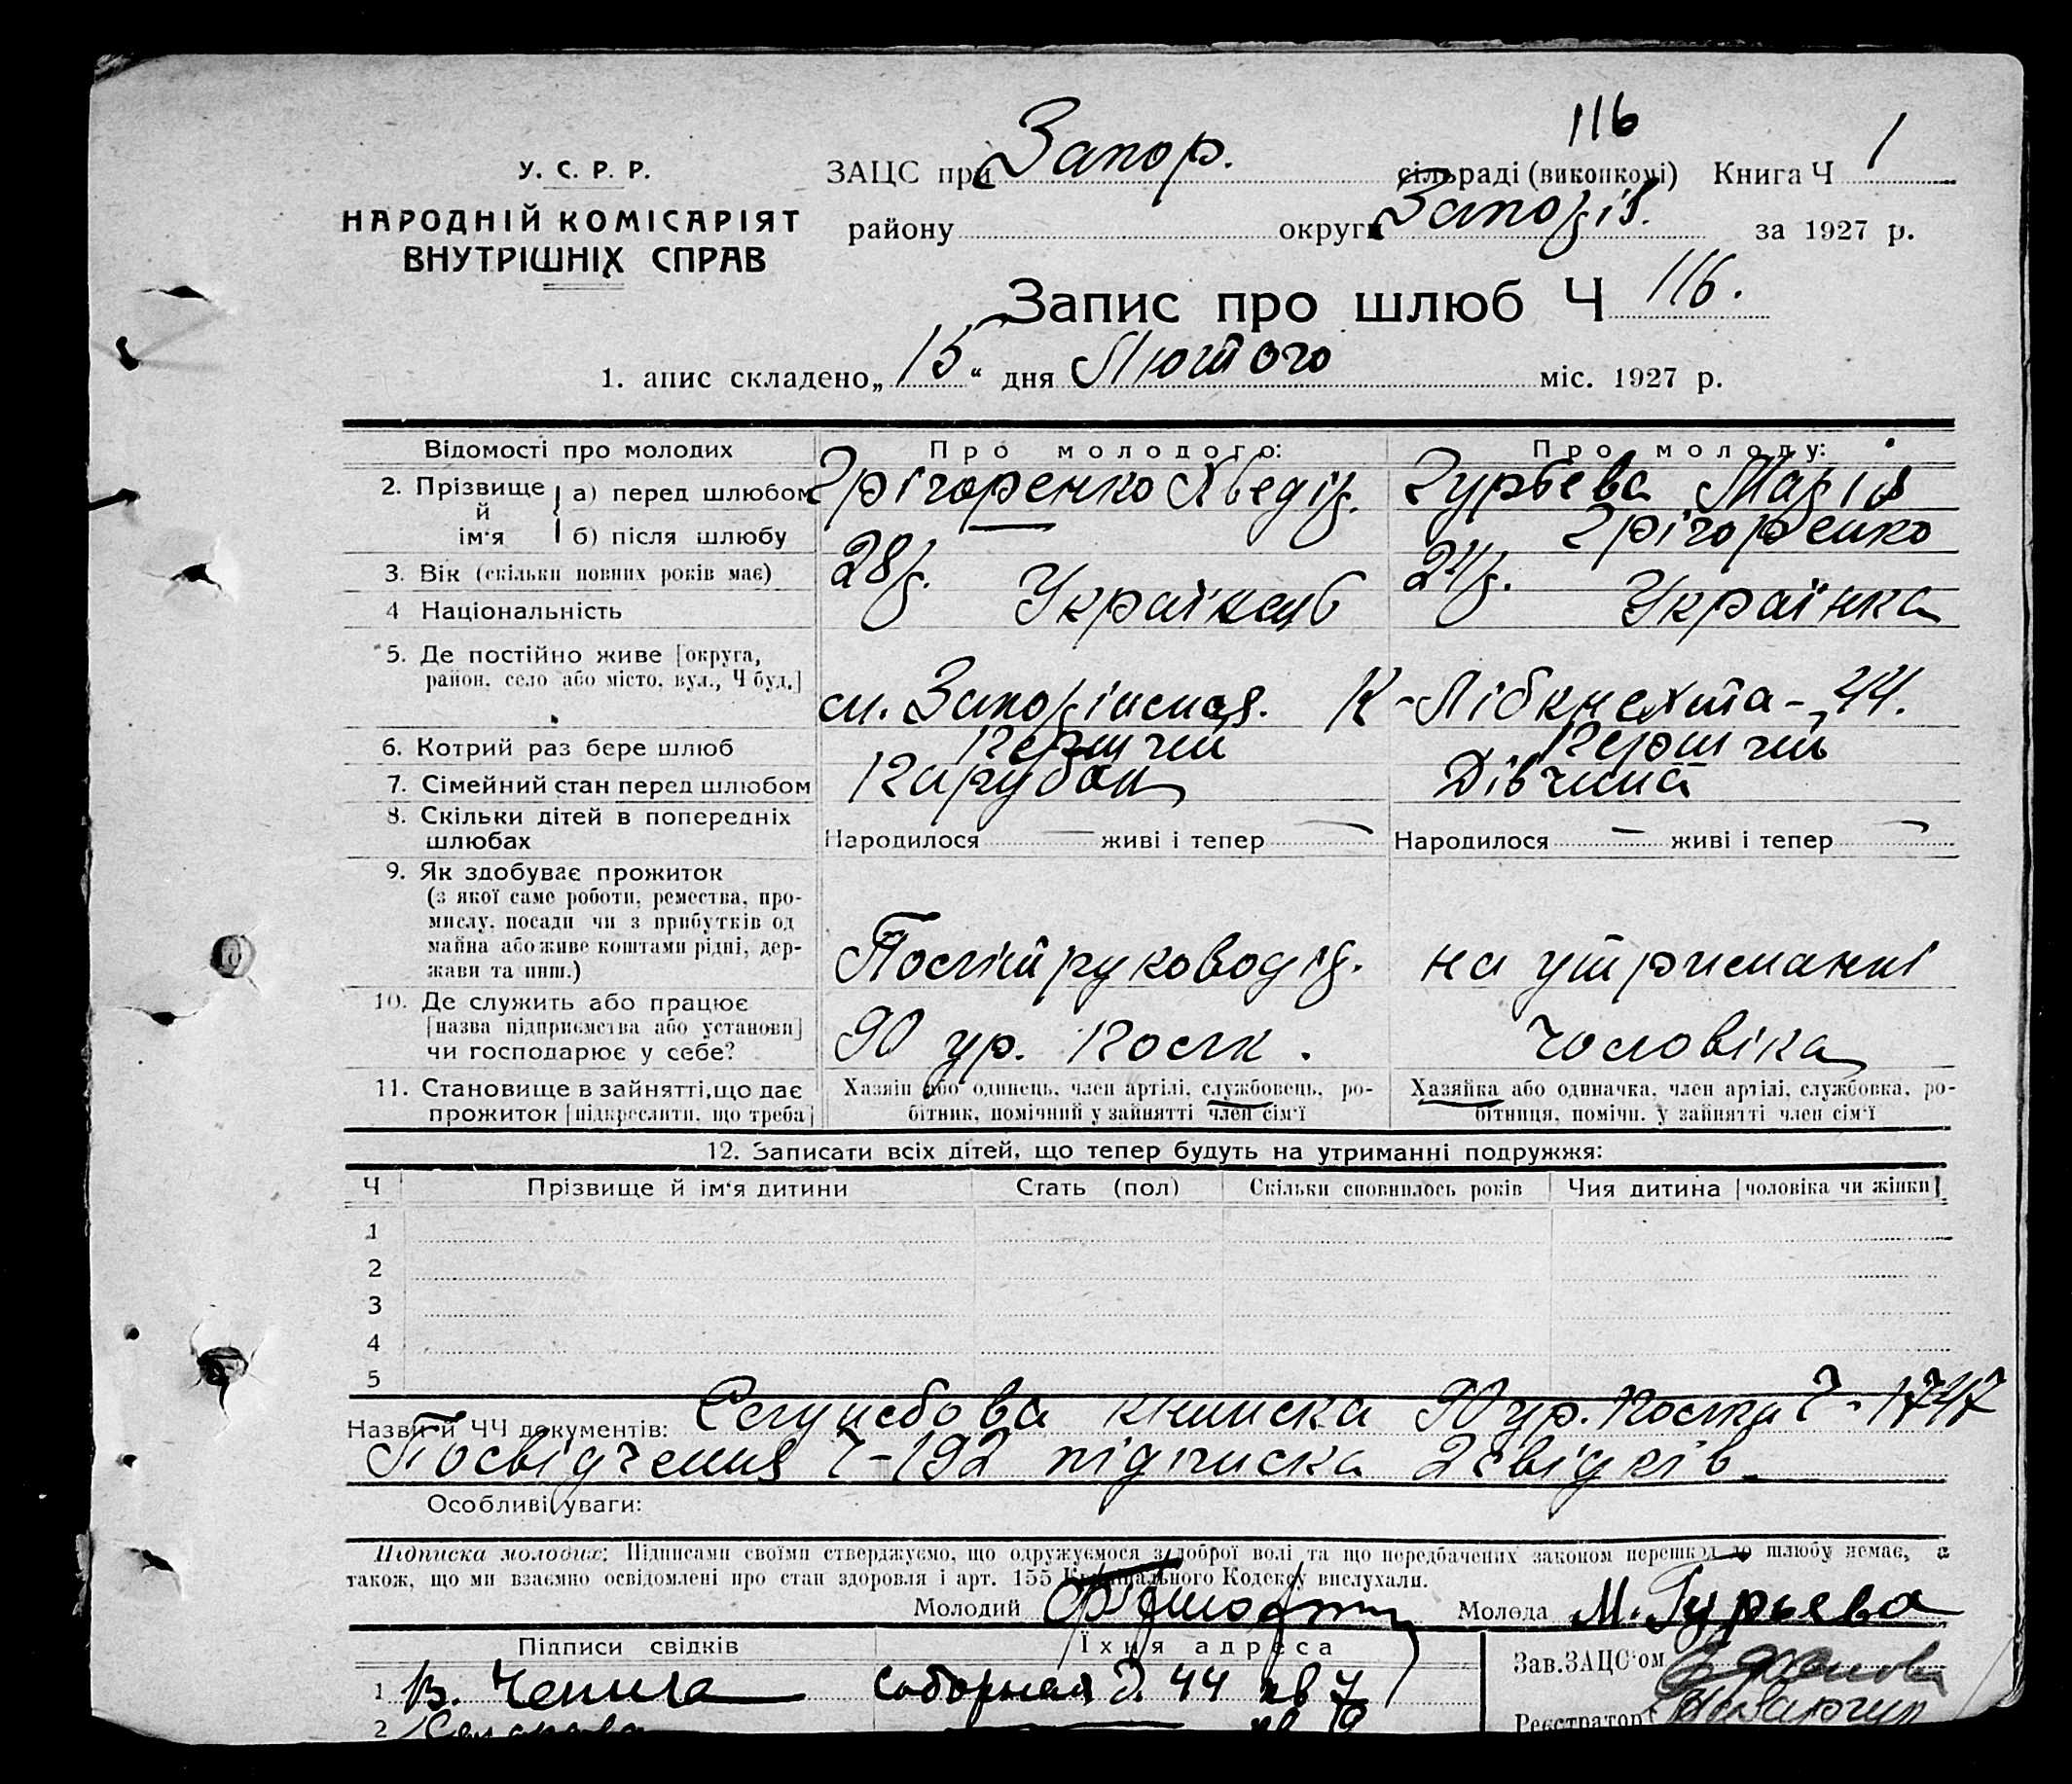 116
У. С. Р. Р. ЗАЦС при Запор. сільраді (виконкомі) Книга Ч 1
НАРОДНІЙ КОМІСАРІЯТ району округи Запоріз. за 1927 р.
ВНУТРІШНІХ СПРАВ
Запис про шлюб Ч 116.
1. апис складено „15“ дня Лютого міс. 1927 р.
Відомості про молодих Про молодого: Про молоду:
2. Прізвище й ім'я а) перед шлюбом Грігоренко Хведір. Гурьева Марія
б) після шлюбу Грігоренко
3. Вік (скільки повних років має) 28р. 24р.
4 Національність Українець Українка
5. Де постійно живе [округа,
район, село або місто, вул., Ч буд.]
м. Запоріжжя. К-Лібкнехта - 44.
6. Котрий раз бере шлюб Перший Перший
7. Сімейний стан перед шлюбом Парубок Дівчина
8. Скільки дітей в попередніх
шлюбах Народилося — живі і тепер — Народилося — живі і тепер —
9. Як здобуває прожиток
(з якої саме роботи, ремества, про-
мислу, посади чи з прибутків од
майна або живе коштами рідні, дер-
жави та инш.) Політруководів. на утриманні
10. Де служить або працює
[назва підприємства або установи]
чи господарює у себе? 90 ур. Полк. Чоловіка
11. Становище в зайнятті, що дає Хазяїн або одинець, член артілі, службовець, ро- Хазяйка або одиначка, член артілі, службовка, ро-
прожиток [підкреслити, що треба] бітник, помічний у зайнятті член сім'ї бітниця, помічн. у зайнятті член сім'ї
12. Записати всіх дітей, що тепер будуть на утриманні подружжя:
Ч Прізвище й ім'я дитини Стать (пол) Скільки сповнилось років Чия дитина [чоловіка чи жінки]
1
2
3
4
5
Назви й ЧЧ документів: Службова книжка 90 ур. Полка Ч-1747
Посвідчення Ч-192 підписка 2 свідків.
Особливі уваги:
Підписка молодих: Підписами своїми стверджуємо, що одружуємося з доброї волі та що передбачених законом перешкод до шлюбу немає, а
також, що ми взаємно освідомлені про стан здоровля і арт. 155 Кримінального Кодексу вислухали.
Молодий Молода М. Гурьева
Підписи свідків Їхня адреса Зав. ЗАЦС'ом
1 В. Чепига Соборная д. 44 кв 7
2 кв Реєстратор